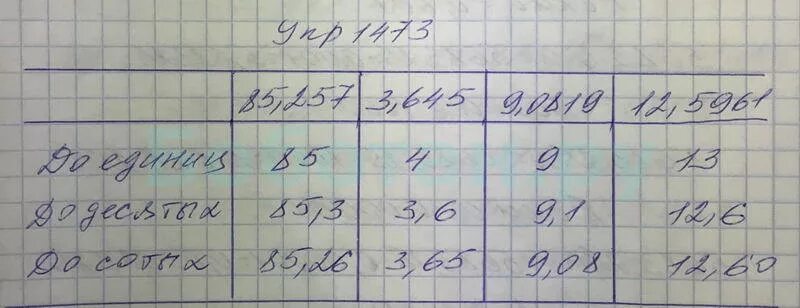 Упр 1473
85,257 3,645 9,0819 12,5961
До единиц 85 4 9 13
До десятых 85,3 3,6 9,1 12,6
До сотых 85,26 3,65 9,08 12,60